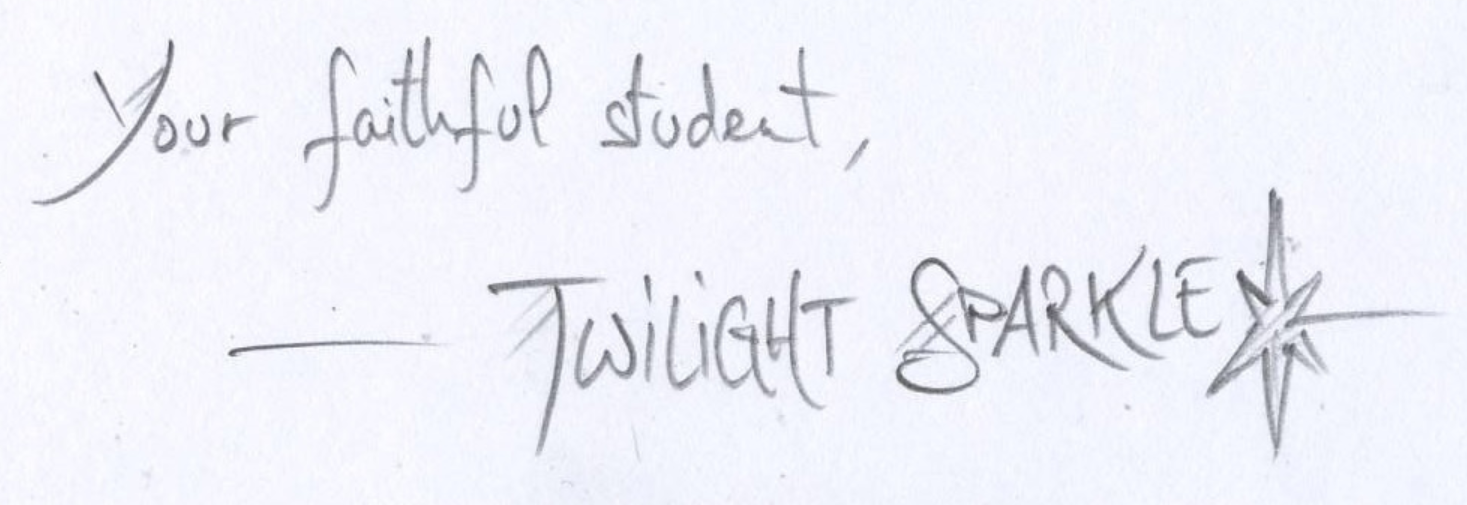 Your faithful student,
— TWiLiGHT SPARKLE